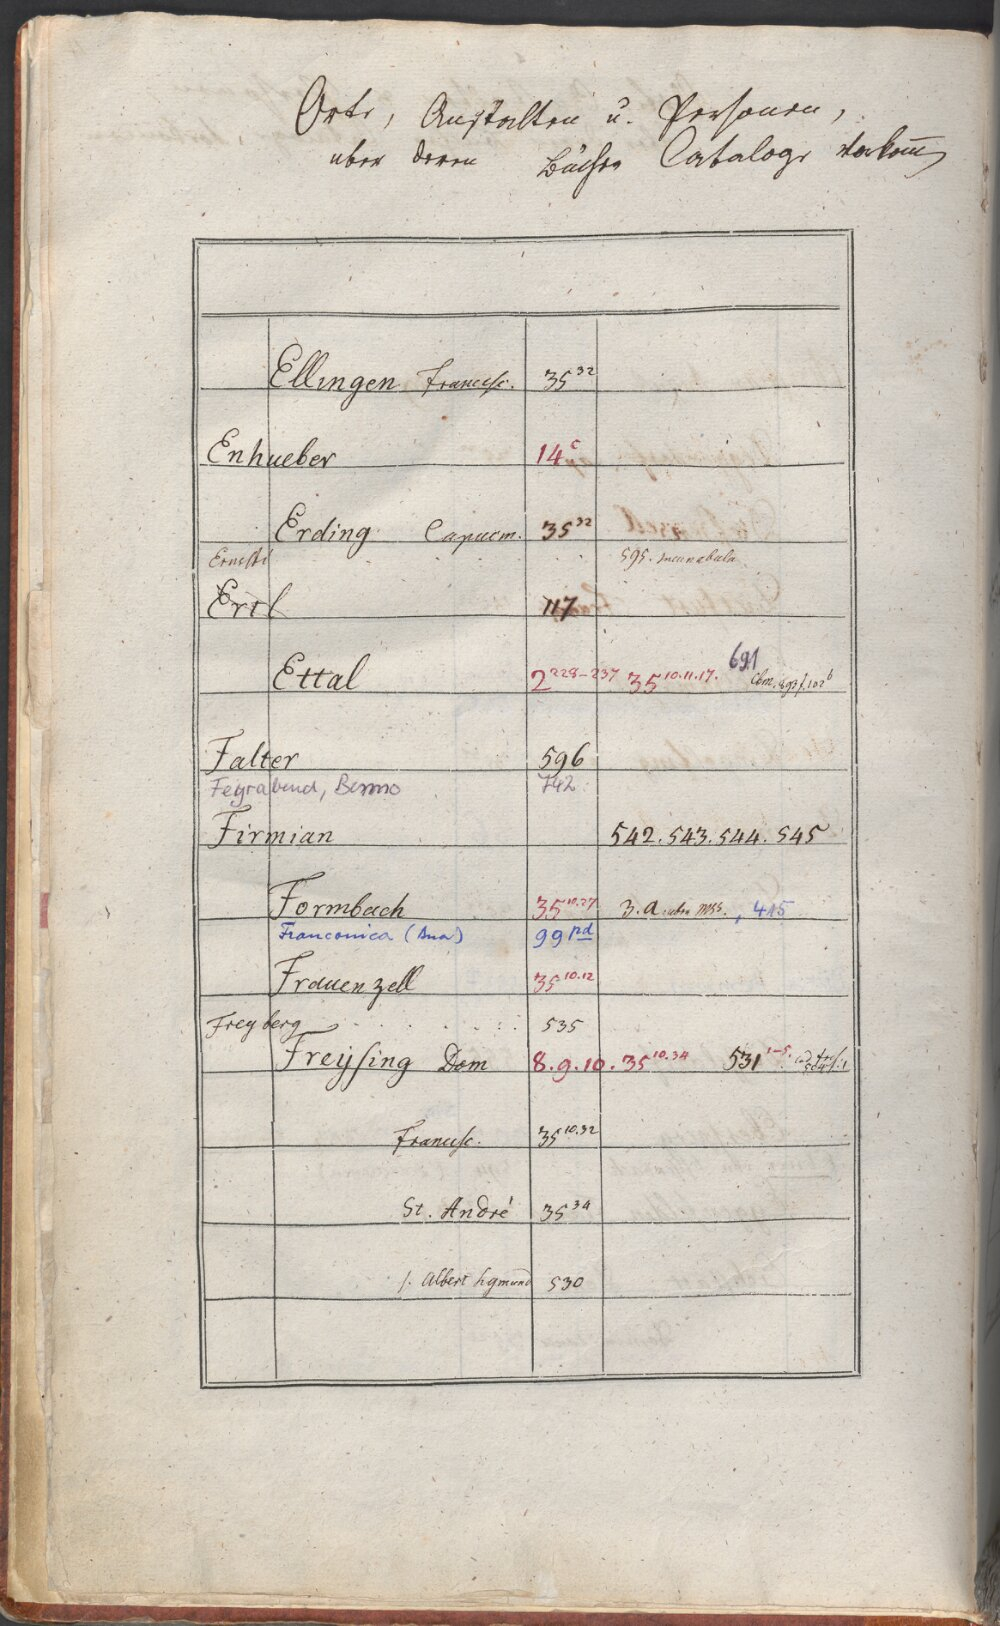 Orte, Anstalten u. Personen,
über deren Bücher Cataloge vorkom̄
Ellingen Francisc. 35 32
Enhueber 14 c
Erding Capucin. 35 32
Ernesti 595. incunabula
Ertl 117
Ettal 2 228-237 35 10.11.17. 691 Cbm. 693 f. 102 b
Falter 596
Feyrabend, Benno 742
Firmian 542. 543. 544. 545
Formbach 35 10.27 3. a Mss. , 415
Franconica (Ana) 99 pd
Frauenzell 35 10.12
Freyberg . . . . . . . 535
Freysing Dom 8. 9. 10. 35 10.34 531 1-5.
Francisc. 35 10.32
St. André 35 34
f. Albert Sigmund 530